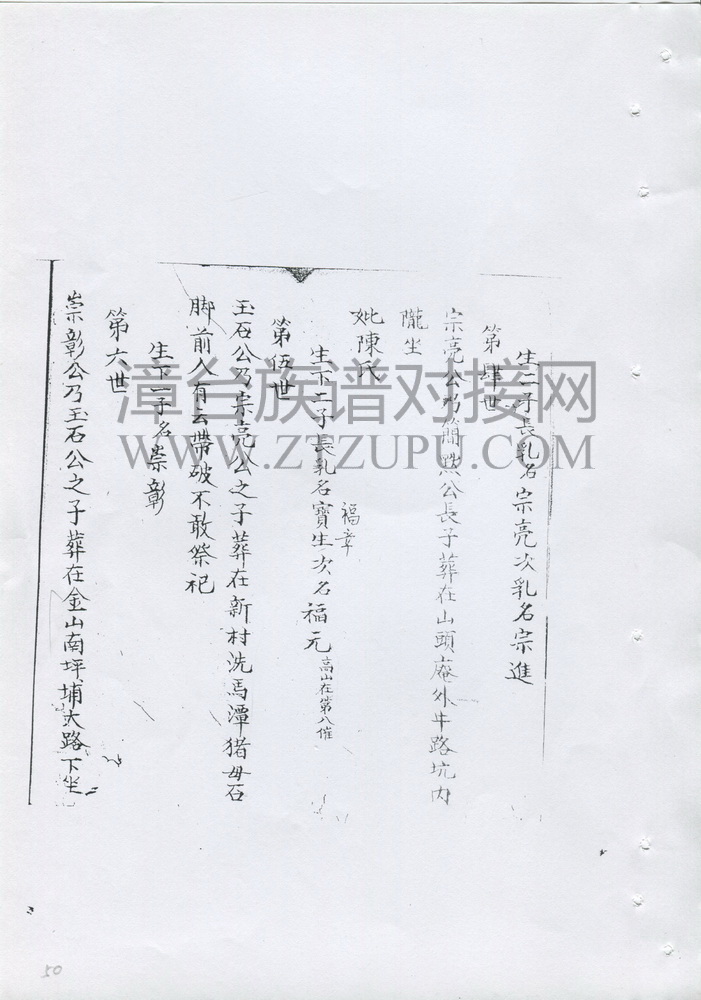 生二子長乳名宗亮次乳名宗進
第肆世
宗亮公乃簡點公長子葬在山頭庵外牛路坑內
隴坐
妣陳氏
福章
生下二子長乳名寶生次名福元高山在第八催
第伍世
玉石公乃宗亮公之子葬在新村洗馬潭猪母石
脚前人有云帶破不敢祭祀
生下一子名崇彰
第六世
崇彰公乃玉石公之子葬在金山南坪埔大路下坐
漳台族谱对接网
WWW.ZTZUPU.COM
50